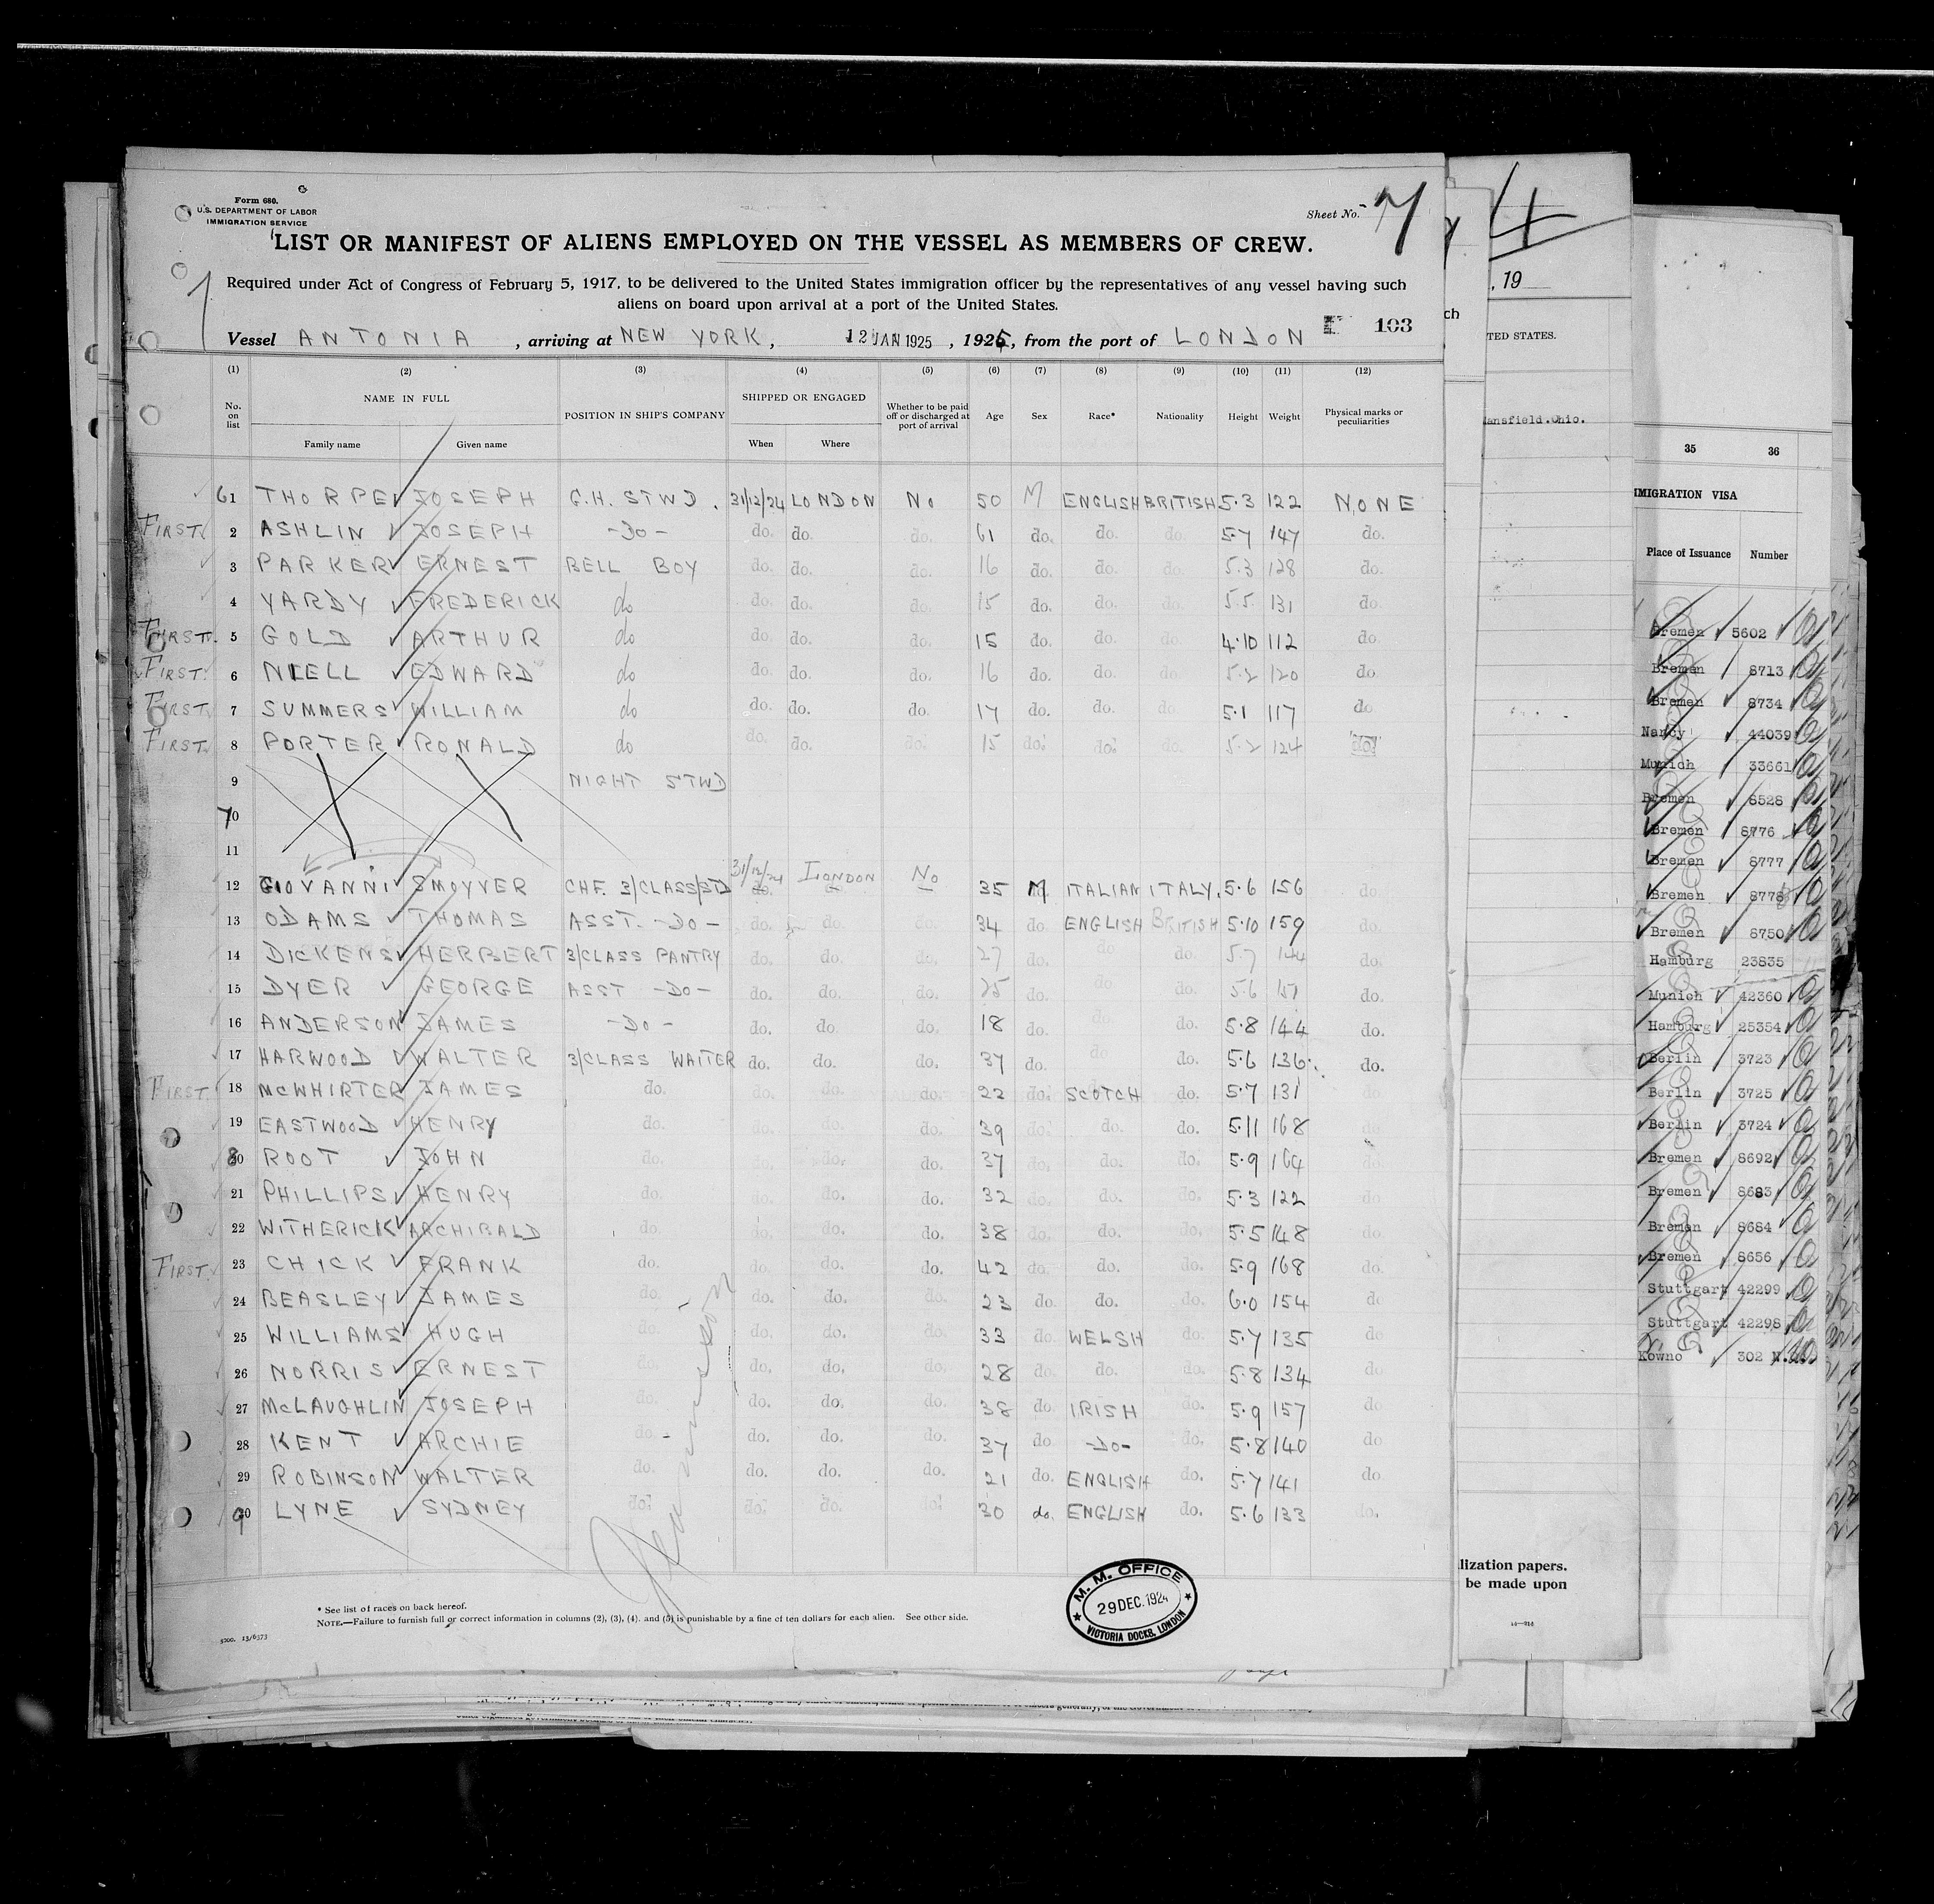 Form 680.
U.S. DEPARTMENT OF LABOR
IMMIGRATION SERVICE
Sheet No. 7
LIST OR MANIFEST OF ALIENS EMPLOYED ON THE VESSEL AS MEMBERS OF CREW.
Required under Act of Congress of February 5, 1917, to be delivered to the United States immigration officer by the representatives of any vessel having such
aliens on board upon arrival at a port of the United States.
103
Vessel ANTONIA, arriving at NEW YORK, 12 JAN 1925, 1925, from the port of LONDON
(1) (2) (3) (4) (5) (6) (7) (8) (9) (10) (11) (12)
No. on list NAME IN FULL POSITION IN SHIP'S COMPANY SHIPPED OR ENGAGED Whether to be paid off or discharged at port of arrival Age Sex Race* Nationality Height Weight Physical marks or peculiarities
Family name Given name When Where
61 THORPE JOSEPH G.H. STWD. 31/12/24 LONDON No 50 M ENGLISH BRITISH 5.3 122 NONE
FIRST 2 ASHLIN JOSEPH -DO- do. do. do. 61 do. do. do. 5.7 147 do.
3 PARKER ERNEST BELL BOY do. do. do. 16 do. do. do. 5.3 128 do.
4 YARDY FREDERICK do do. do. do. 15 do. do. do. 5.5 131 do.
FIRST. 5 GOLD ARTHUR do do. do. do. 15 do. do. do. 4.10 112 do.
FIRST. 6 NIELL EDWARD do do. do. do. 16 do. do. do. 5.2 120 do
FIRST. 7 SUMMERS WILLIAM do do. do. do. 17 do. do. do. 5.1 117 do
FIRST. 8 PORTER RONALD do do. do. do. 15 do. do. do. 5.2 124 do.
9 NIGHT STWD
70
11
12 GIOVANNI SMOYVER CHF. 3/CLASS/STD 31/12/24 do. LONDON No 35 M ITALIAN ITALY. 5.6 156 do.
13 ODAMS THOMAS ASST. -DO- do. do. do. 34 do. ENGLISH BRITISH 5.10 159 do.
14 DICKENS HERBERT 3/CLASS PANTRY do. do. do. 27 do. do do. 5.7 144 do.
15 DYER GEORGE ASST -DO- do. do. do. 25 do. do do. 5.6 151 do.
16 ANDERSON JAMES -DO- do. do. do. 18 do. do. 5.8 144 do.
17 HARWOOD WALTER 3/CLASS WAITER do. do. do. 37 do. do do. 5.6 136 do.
FIRST 18 McWHIRTER JAMES do. do. do. do. 22 do. SCOTCH do. 5.7 131 do
19 EASTWOOD HENRY do. do. do. do. 39 do. do. do. 5.11 168 do
80 ROOT JOHN do. do. do. do. 37 do. do. do. 5.9 164 do
21 PHILLIPS HENRY do. do. do. do. 32 do. do. do. 5.3 122 do
22 WITHERICK ARCHIBALD do do. do. do. 38 do. do. do. 5.5 148 do.
FIRST. 23 CHICK FRANK do. do. do. do. 42 do. do. do. 5.9 168 do.
24 BEASLEY JAMES do. do. do. do. 23 do do. do. 6.0 154 do
25 WILLIAMS HUGH do. do. do. do. 33 do WELSH do. 5.7 135 do
26 NORRIS ERNEST do. do. do. do. 28 do. do. do. 5.8 134 do
27 McLAUGHLIN JOSEPH do. do. do. do. 38 do IRISH do. 5.9 157 do
28 KENT ARCHIE do. do. do. do. 37 do -DO- do. 5.8 140 do
29 ROBINSON WALTER do. do. do. do. 21 do. ENGLISH do. 5.7 141 do
90 LYNE SYDNEY do. do. do. do. 30 do. ENGLISH do. 5.6 133 do.
M. M. OFFICE
29 DEC. 1924
VICTORIA DOCKS, LONDON
* See list of races on back hereof.
NOTE.—Failure to furnish full or correct information in columns (2), (3), (4), and (5) is punishable by a fine of ten dollars for each alien. See other side.
5000. 13/6373
4
, 19
ch
TED STATES.
Mansfield.Ohio.
lization papers.
be made upon
35 36
IMIGRATION VISA
Place of Issuance Number
Bremen 5602
Bremen 8713
Bremen 8734
Nancy 44039
Munich 33661
Bremen 8528
Bremen 8776
Bremen 8777
Bremen 8778
Bremen 8750
Hamburg 23835
Munich 42360
Hamburg 25354
Berlin 3723
Berlin 3725
Berlin 3724
Bremen 8692
Bremen 8683
Bremen 8684
Bremen 8656
Stuttgart 42299
Stuttgart 42298
Kowno 302